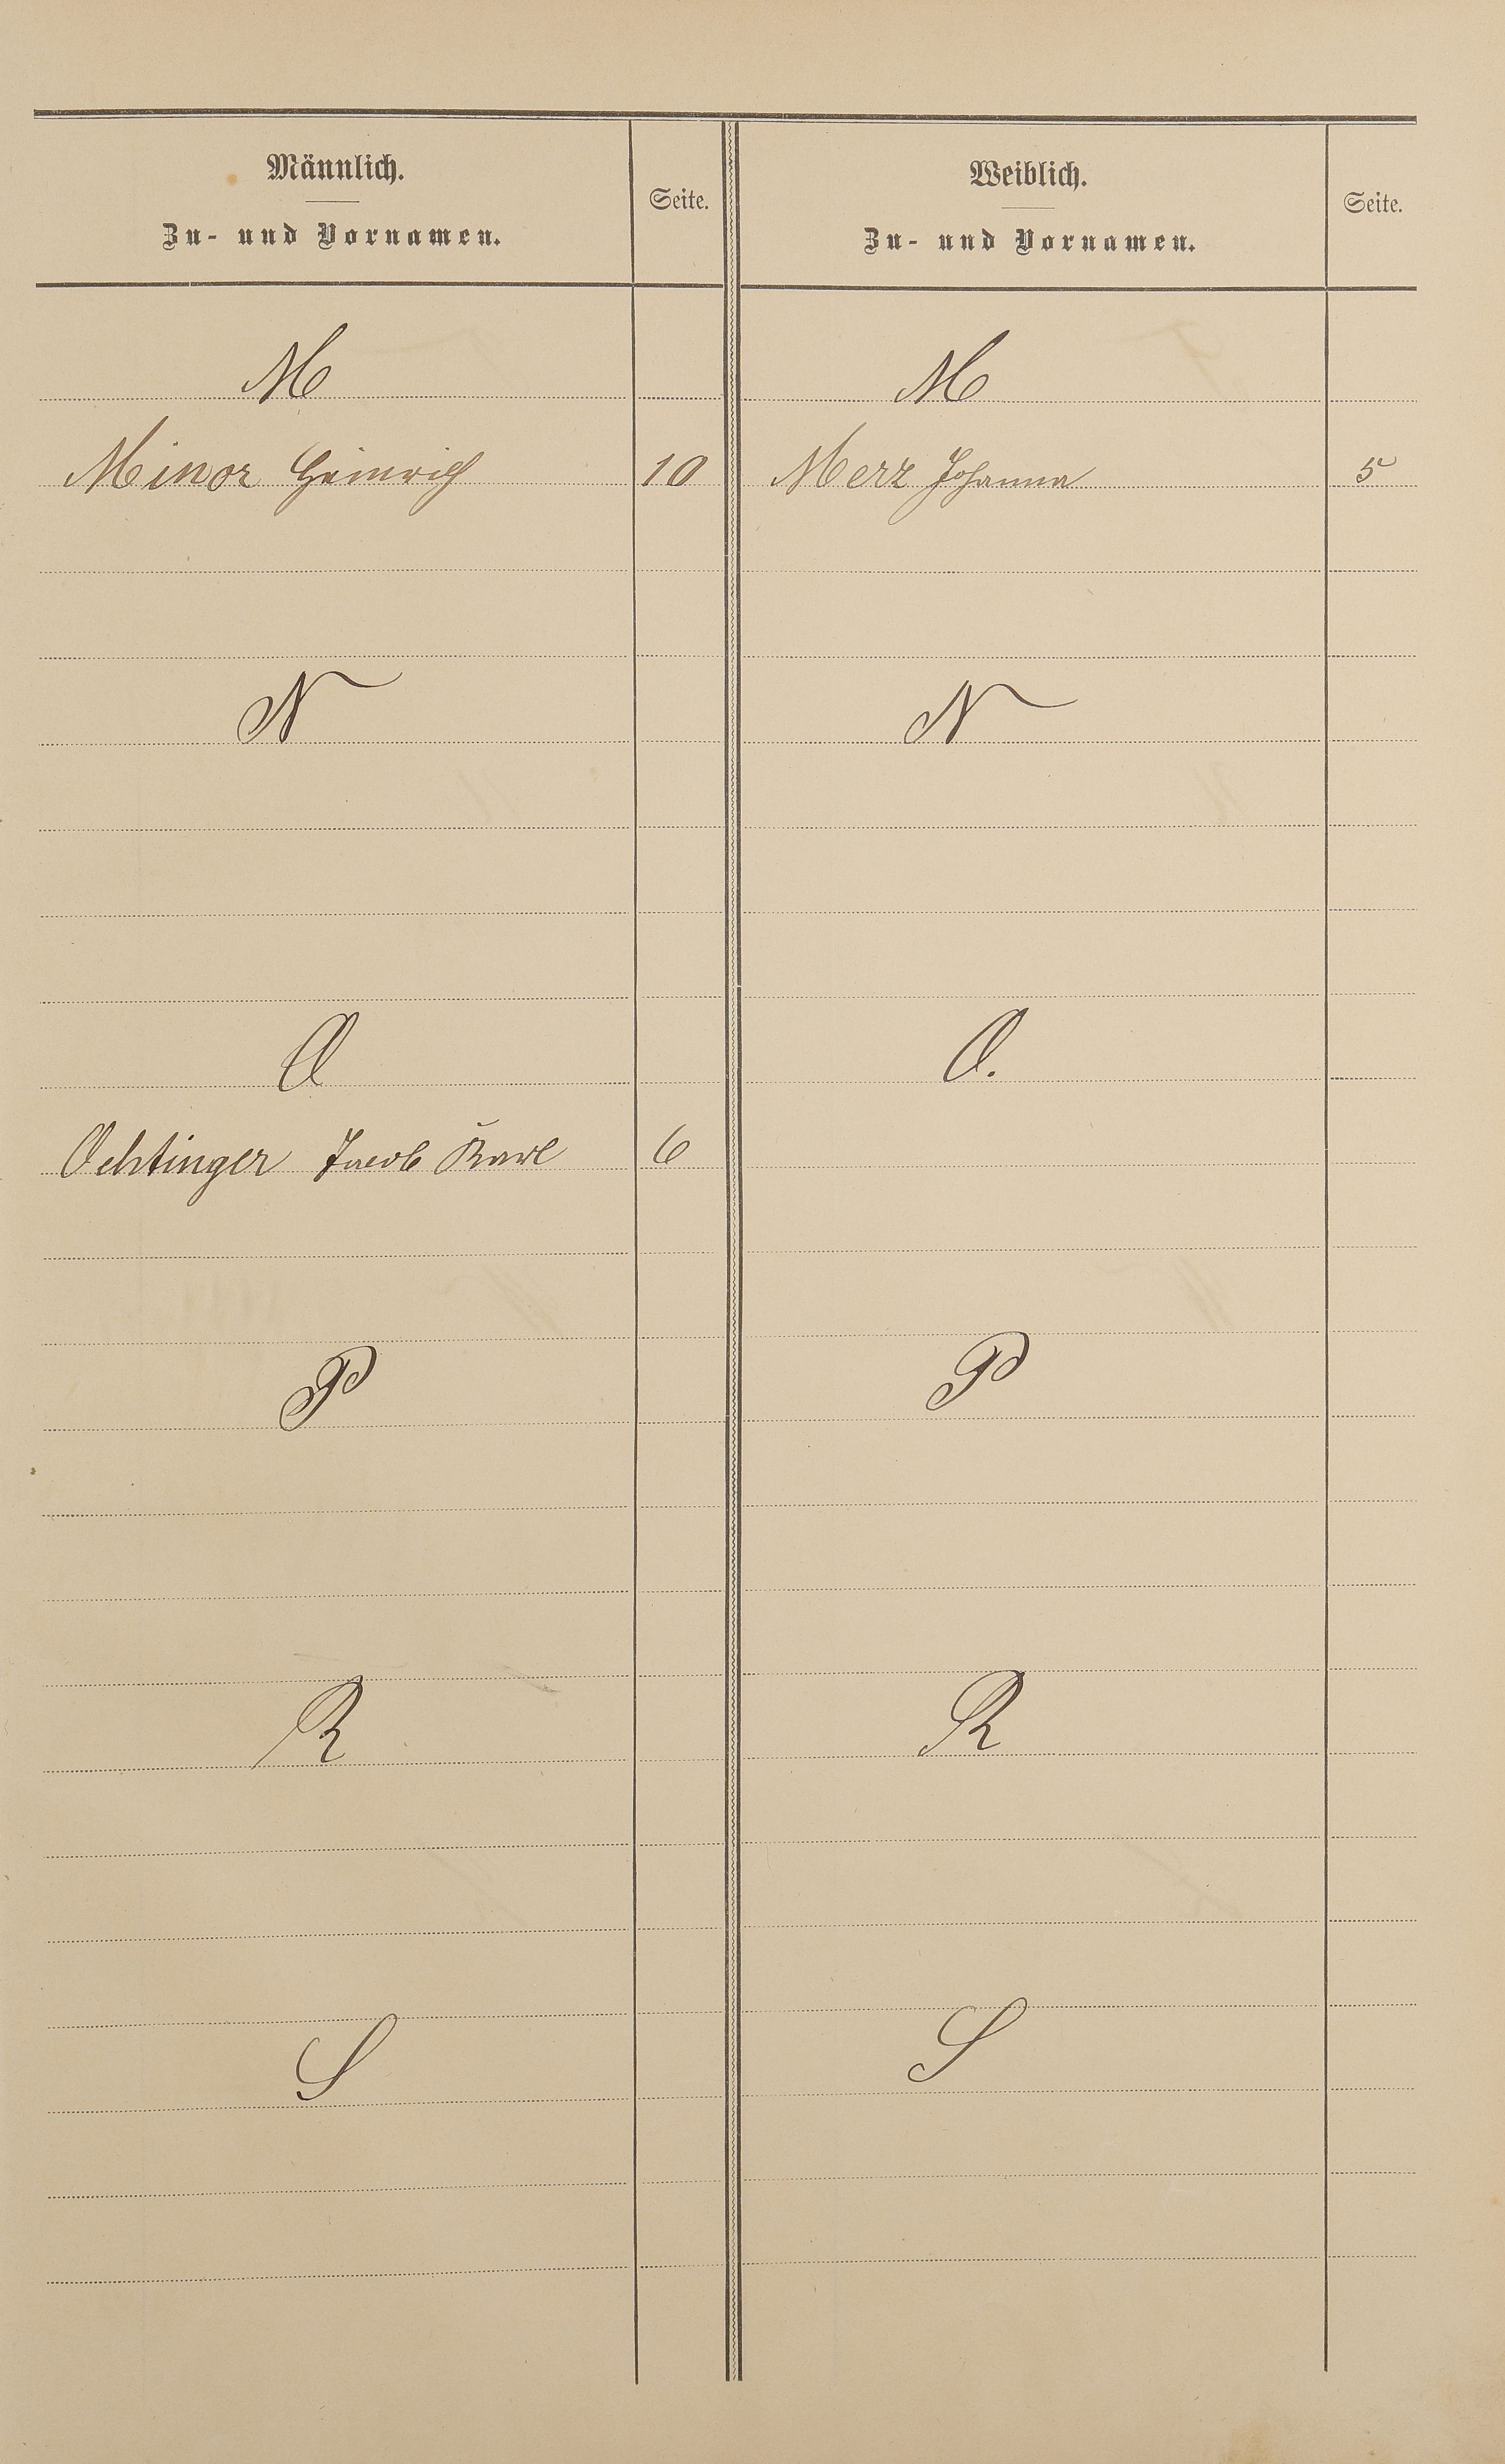 Männlich.
Zu- und Vornamen.
Seite.
Weiblich.
Zu- und Vornamen.
Seite.
M
M
Minor Heinrich 10 Merz Johanna 5
N
N
O
O.
Oehtinger Jacob Karl 6
P
P
R
R
S
S